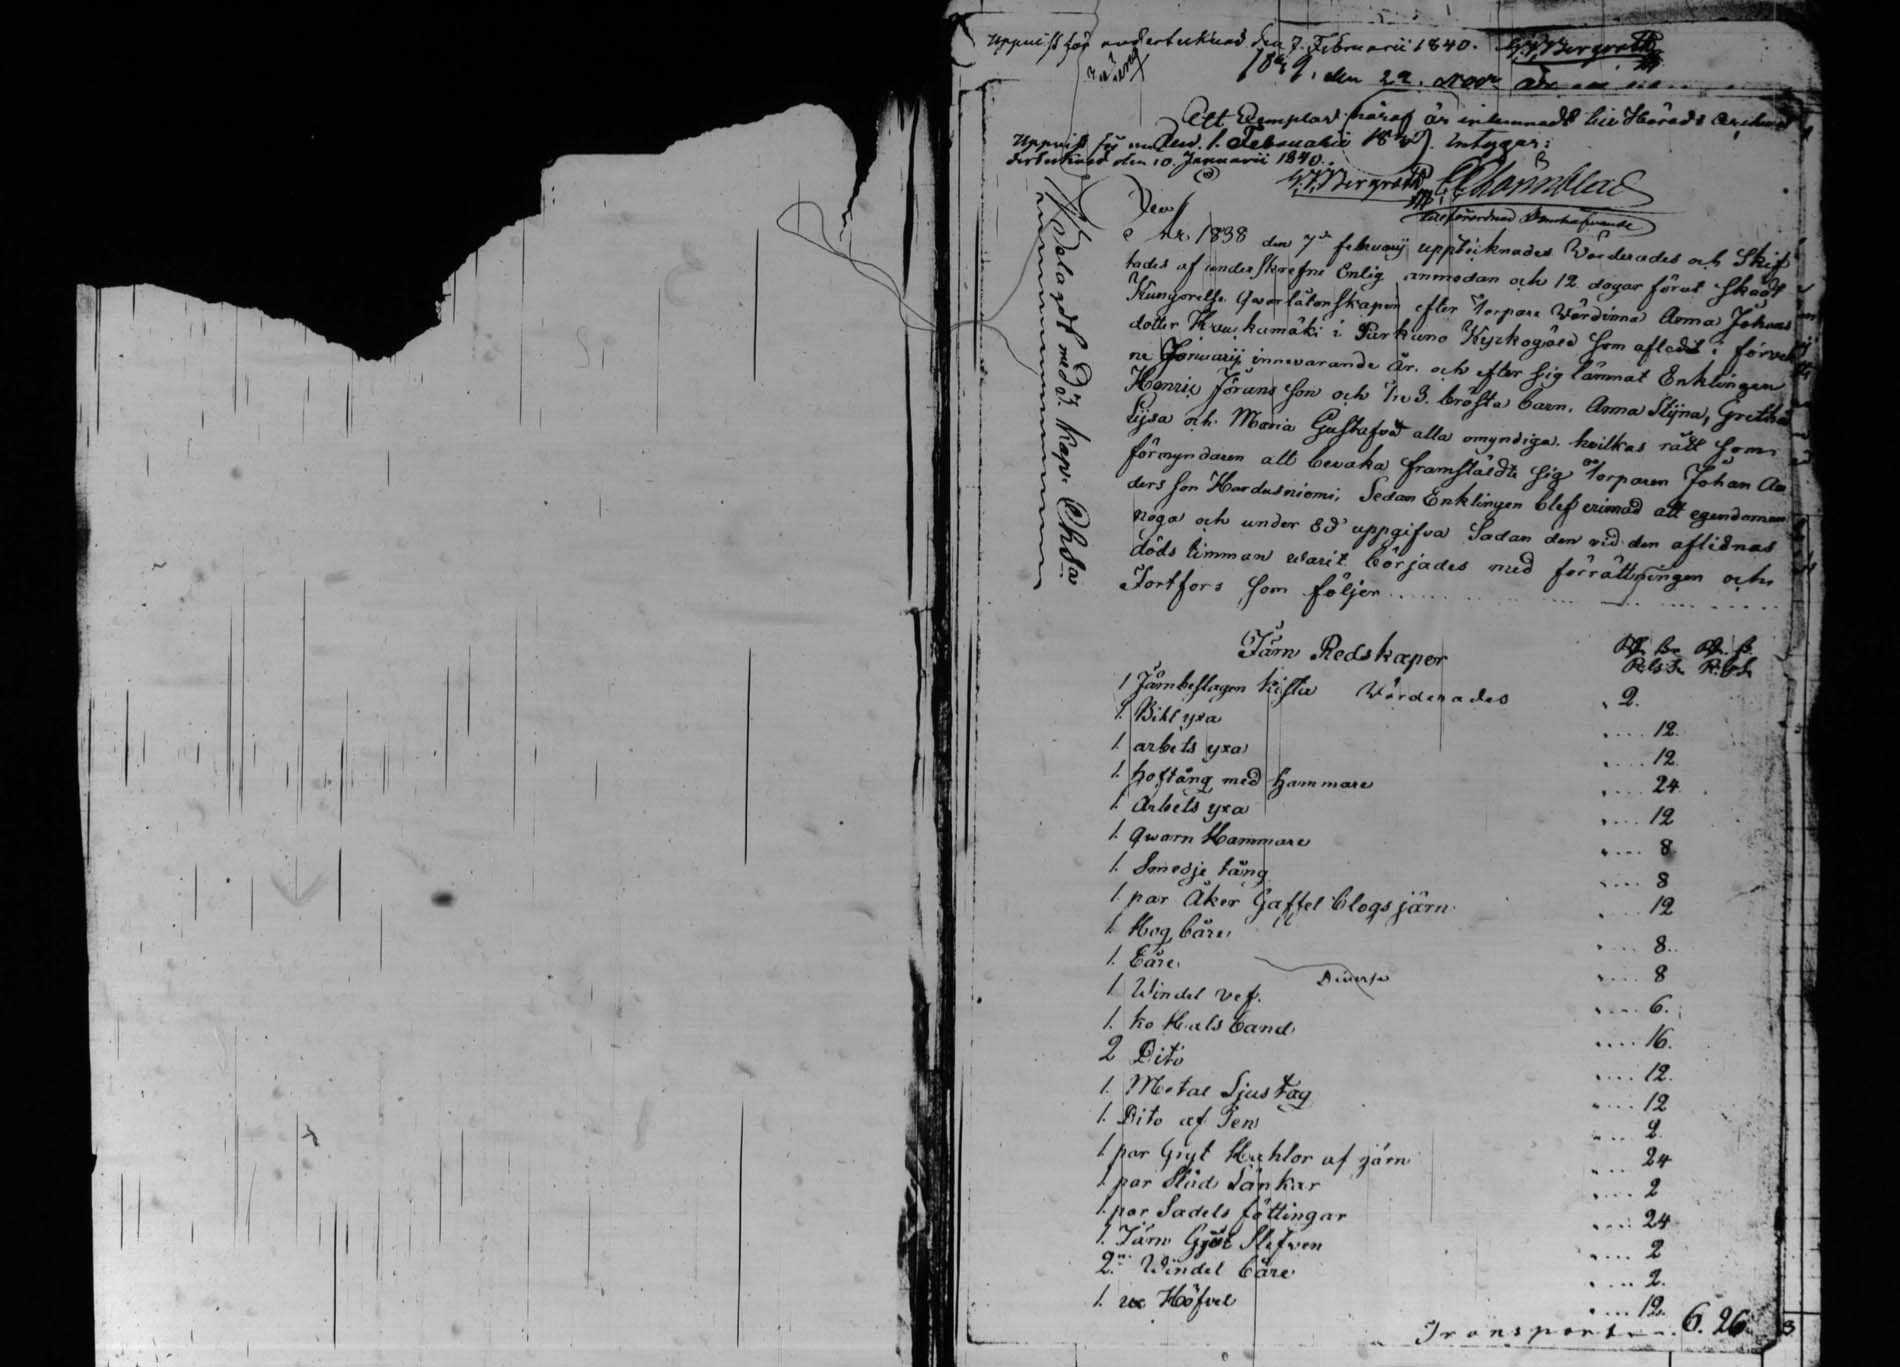 Uppvist för undertecknad den 7. Februarii 1840. G. F. Bergroth
den 22. Nov
Ett Exemplar häraf är inlemnadt till Härads Archivet
den 1. Februarii 18 intygar:
Uppvist för un
dertecknad den 10. Januarii 1840.
G. F. Bergroth
År 1838 den 7de februarij uppteknades Värderades och Skif
tades af underskrefne Enlig anmodan och 12 dagar förut Skedd
Kungorelse Qvarlåtenskapen efter Torpare Värdinna Anna Johans
dotter i Parkano Kyrkogäld som afledit i förvek
ne Januarij innevarande År. och efter sig lämnat Enklingen
Henric Jöransson och 3. bröst barn, Anna Stijna, Greta
Lijsa och Maria Gustafva alla omyndiga. hvilkas rätt som
förmyndaren att bevaka framstäldte sig Torparen Johan An
dersson Hardusniemi, Sedan Enklingen blef erinrad att egendomen
noga och under Ed uppgifva Sadan den vid den aflidnas
döds timman varit börjades med förrättningen och
Fortfors som följer
Videlagdt med 3. kop. Chta
Järn Redskaper
1 Järnbeslagen kista Värderades 2.
1. Bihl yxa 12.
1. arbets yxa 12.
1. hoftång med hammare 24
1. Arbets yxa 12
1. qwarn Hammare 8
1. Smedje tång 8
1. par Åker Gaffel blogs järn 12
1. Hog båre 8.
1. båre 8
Diverse
1. Windel vef. 6.
1. ko Hals band 16.
2 Dito 12.
1. Metal Ljus tag 12
1. Dito af Ten 2.
1. par Gryt Hahlor af järn 24
1. par Städ Länkar 2
1. par Sadels fättingar 24
1. Järn Gryt Slefven 2
2. Windel båre 2.
1. Höfvel 12.
Transport 6. 26